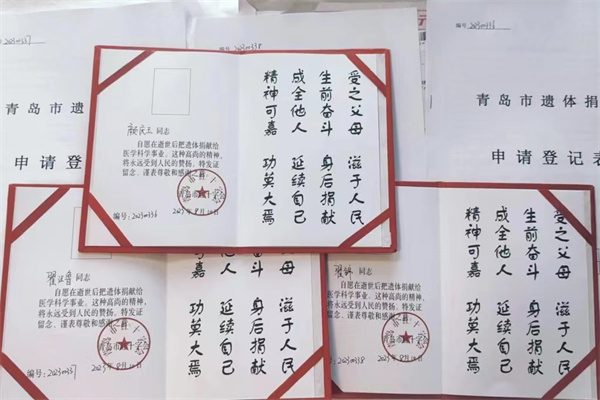 编号:20230337
青岛市遗体
申请登记
编号:20230338
编号:20230336
青岛市遗体捐
申请登记表
同志
自愿在逝世后把遗体捐献给
医学科学事业。这种高尚的精神,
将永远受到人民的赞扬。特发证
留念、谨表尊敬和感谢之意。
编号:20230336
受之父母 滋于人民
生前奋斗 身后捐献
成全他人 延续自己
精神可嘉 功莫大焉
同志
自愿在逝世后把遗体捐献给
医学科学事业。这种高尚的精神,
将永远受到人民的赞扬。特发证
留念、谨表尊敬和感谢之意。
编号:20230337
受之父母 滋于人民
生前奋斗 身后捐献
成全他人 延续自己
精神可嘉 功莫大焉
同志
自愿在逝世后把遗体捐献给
医学科学事业。这种高尚的精神,
将永远受到人民的赞扬。特发证
留念、谨表尊敬和感谢之意。
编号:20230338
受之父母 滋于人民
生前奋斗 身后捐献
成全他人 延续自己
精神可嘉 功莫大焉